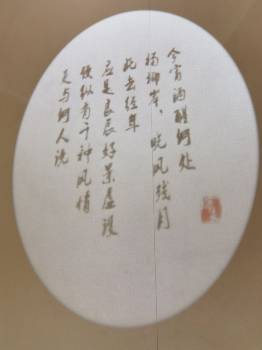 今宵酒醒何处
杨柳岸、晓风残月
此去经年
应是良辰好景虚设
便纵有千种风情
更与何人说